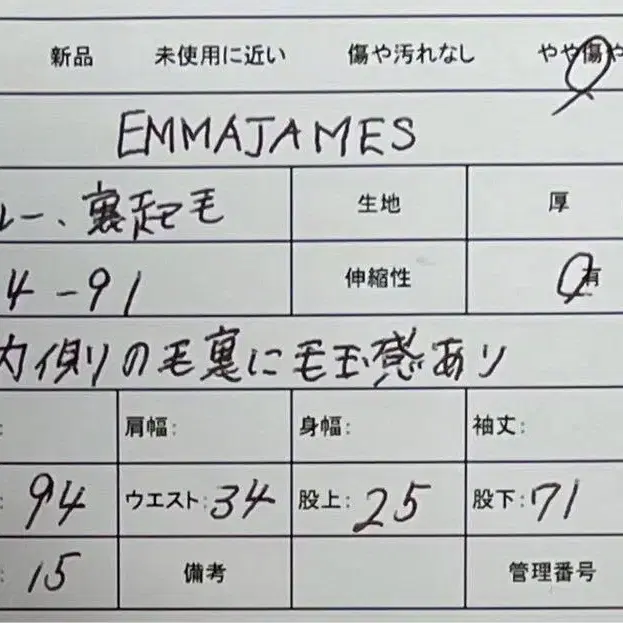 新品 未使用に近い 傷や汚れなし やや傷や
EMMAJAMES
ルー、裏起毛 生地 厚
4-91 伸縮性 有
内側りの毛裏に毛玉感あり
: 肩幅: 身幅: 袖丈:
: 94 ウエスト: 34 股上: 25 股下: 71
: 15 備考 管理番号